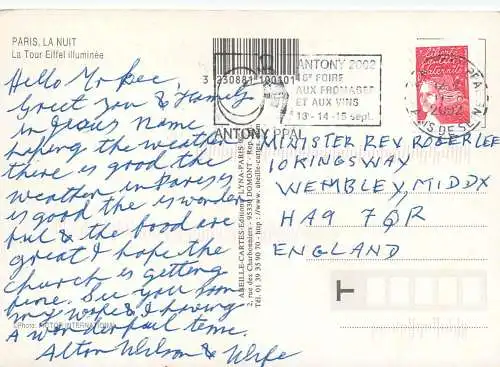 PARIS, LA NUIT
La Tour Eiffel illuminée
Hello Mr Lee
Greet you & Family
in Jesus Name
hoping the weather
there is good the
weather in Paris es
is good the is wonder
ful & the food are
great I hope the
church is getting
fine. See you soon
my wife & I having
a wonderful teme.
Alton Wilson & Wife
©Photo: VICTOR INTERNATIONAL
3 230881 100101
ANTONY PPAL
ANTONY 2002
6e FOIRE
AUX FROMAGES
ET AUX VINS
13 - 14 - 15 sept.
Liberté
Égalité
Fraternité
ABEILLE-CARTES Editions LYNA-PARIS
2, rue des Charbonniers - 95330 DOMONT
TÉL. 01 39 35 90 70 - http://www.abeille-cartes
MINISTER REV ROGER LEE
10 KINGSWAY
WEMBLEY, MIDDX
HA9 7QR
ENGLAND
T